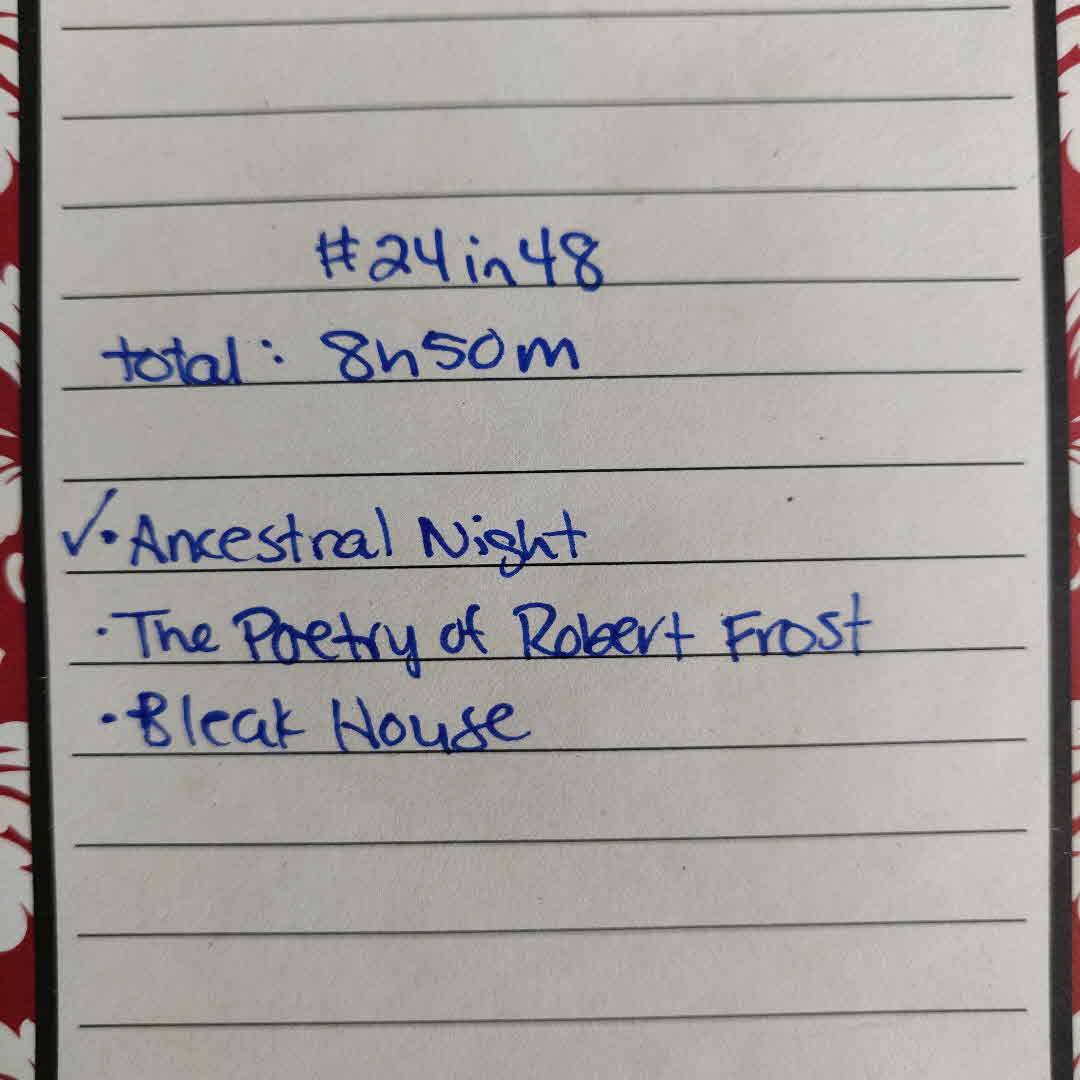 #24in48
total: 8h50m
✓· Ancestral Night
· The Poetry of Robert Frost
· Bleak House